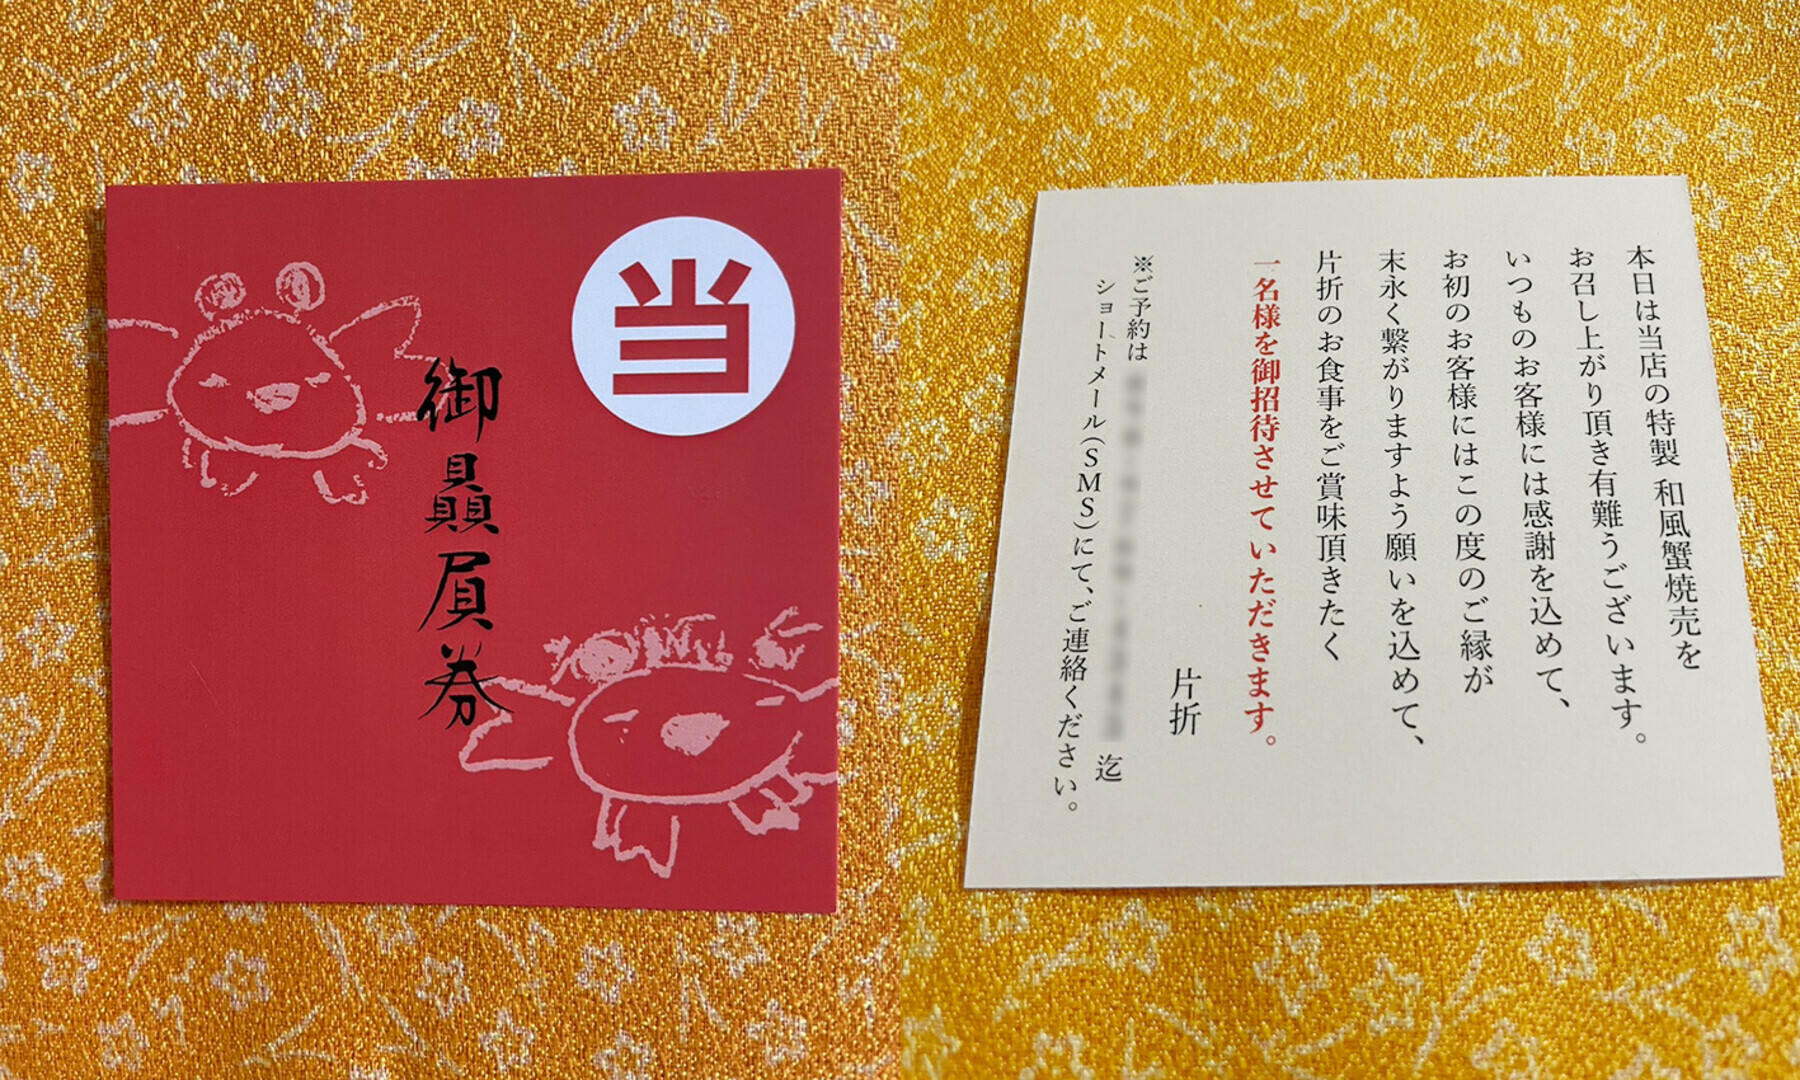 当
御贔屓券
本日は当店の特製 和風蟹焼売を
お召し上がり頂き有難うございます。
いつものお客様には感謝を込めて、
お初のお客様にはこの度のご縁が
末永く繋がりますよう願いを込めて、
片折のお食事をご賞味頂きたく
一名様を御招待させていただきます。
片折
※ご予約は
迄
ショートメール(SMS)にて、ご連絡ください。